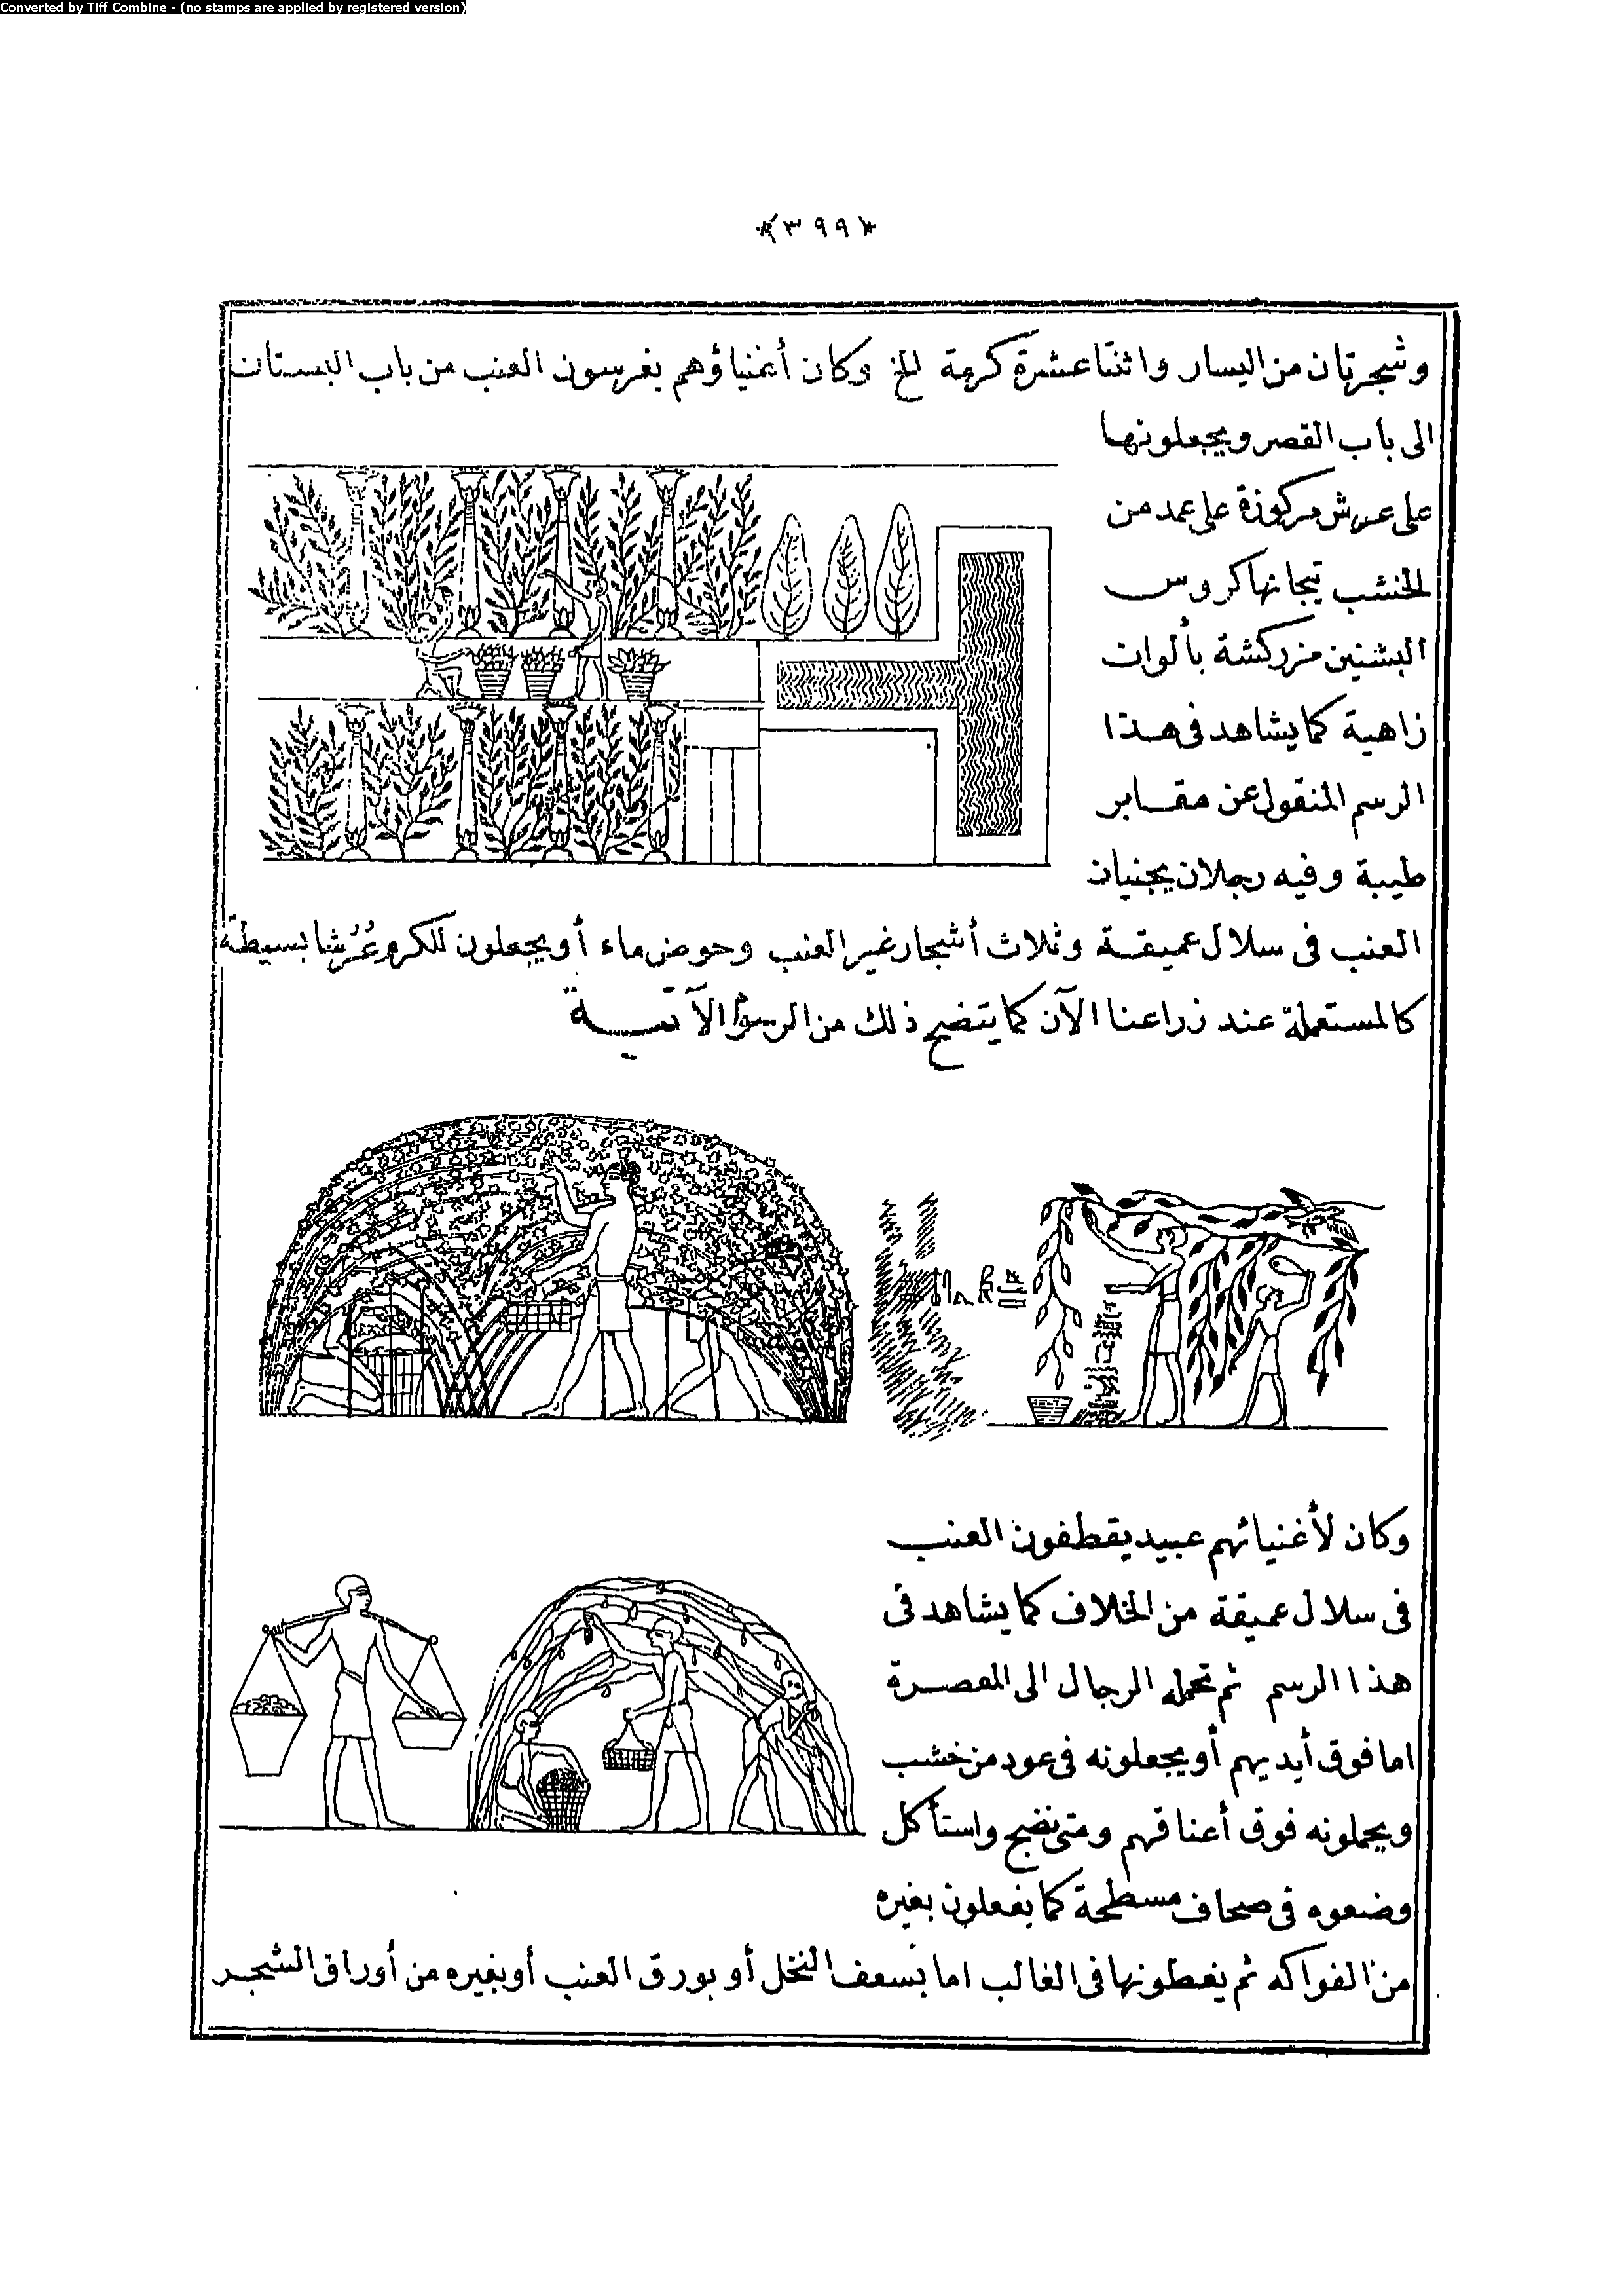 Converted by Tiff Combine - (no stamps are applied by registered version)
﴿٣٩٩﴾
وشجرتان من اليسار واثنتا عشرة كرمة الخ وكان أغنياؤهم يغرسون العنب من باب البستان
الى باب القصر ويجعلونها
على عرش مركوزة على عمد من
الخشب تيجانها كروس
البشنين مزركشة بألوان
زاهية كما يشاهد فى هذا
الرسم المنقول عن مقابر
طيبة وفيه رجلان يجنيان
العنب فى سلال عميقة وثلاث أشجار غير العنب وحوض ماء أو يجعلون للكرم عُرُشا بسيطة
كالمستعملة عند زراعنا الآن كما يتضح ذلك من الرسوم الآتية
وكان لأغنيائهم عبيد يقطفون العنب
فى سلال عميقة من الخلاف كما يشاهد فى
هذا الرسم ثم تحمله الرجال الى المعصرة
اما فوق أيديهم أو يجعلونه فى عود من خشب
ويحملونه فوق أعناقهم ومتى نضج واستأكل
وضعوه فى صحاف مسطحة كما يفعلون بغيره
من الفواكه ثم يغطونها فى الغالب اما بسعف النخل أو بورق العنب أو بغيره من أوراق الشجر